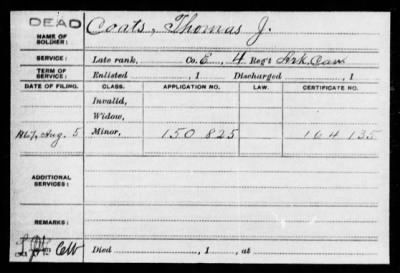 DEAD
NAME OF SOLDIER: Coats, Thomas J.
SERVICE: Late rank, Co. E, 4 Reg't Ark. Cav.
TERM OF SERVICE: Enlisted , 1 Discharged , 1
DATE OF FILING. CLASS. APPLICATION NO. LAW. CERTIFICATE NO.
Invalid,
Widow,
1867, Aug. 5 Minor, 150 825 104 135
ADDITIONAL SERVICES:
REMARKS:
Died , 1 , at